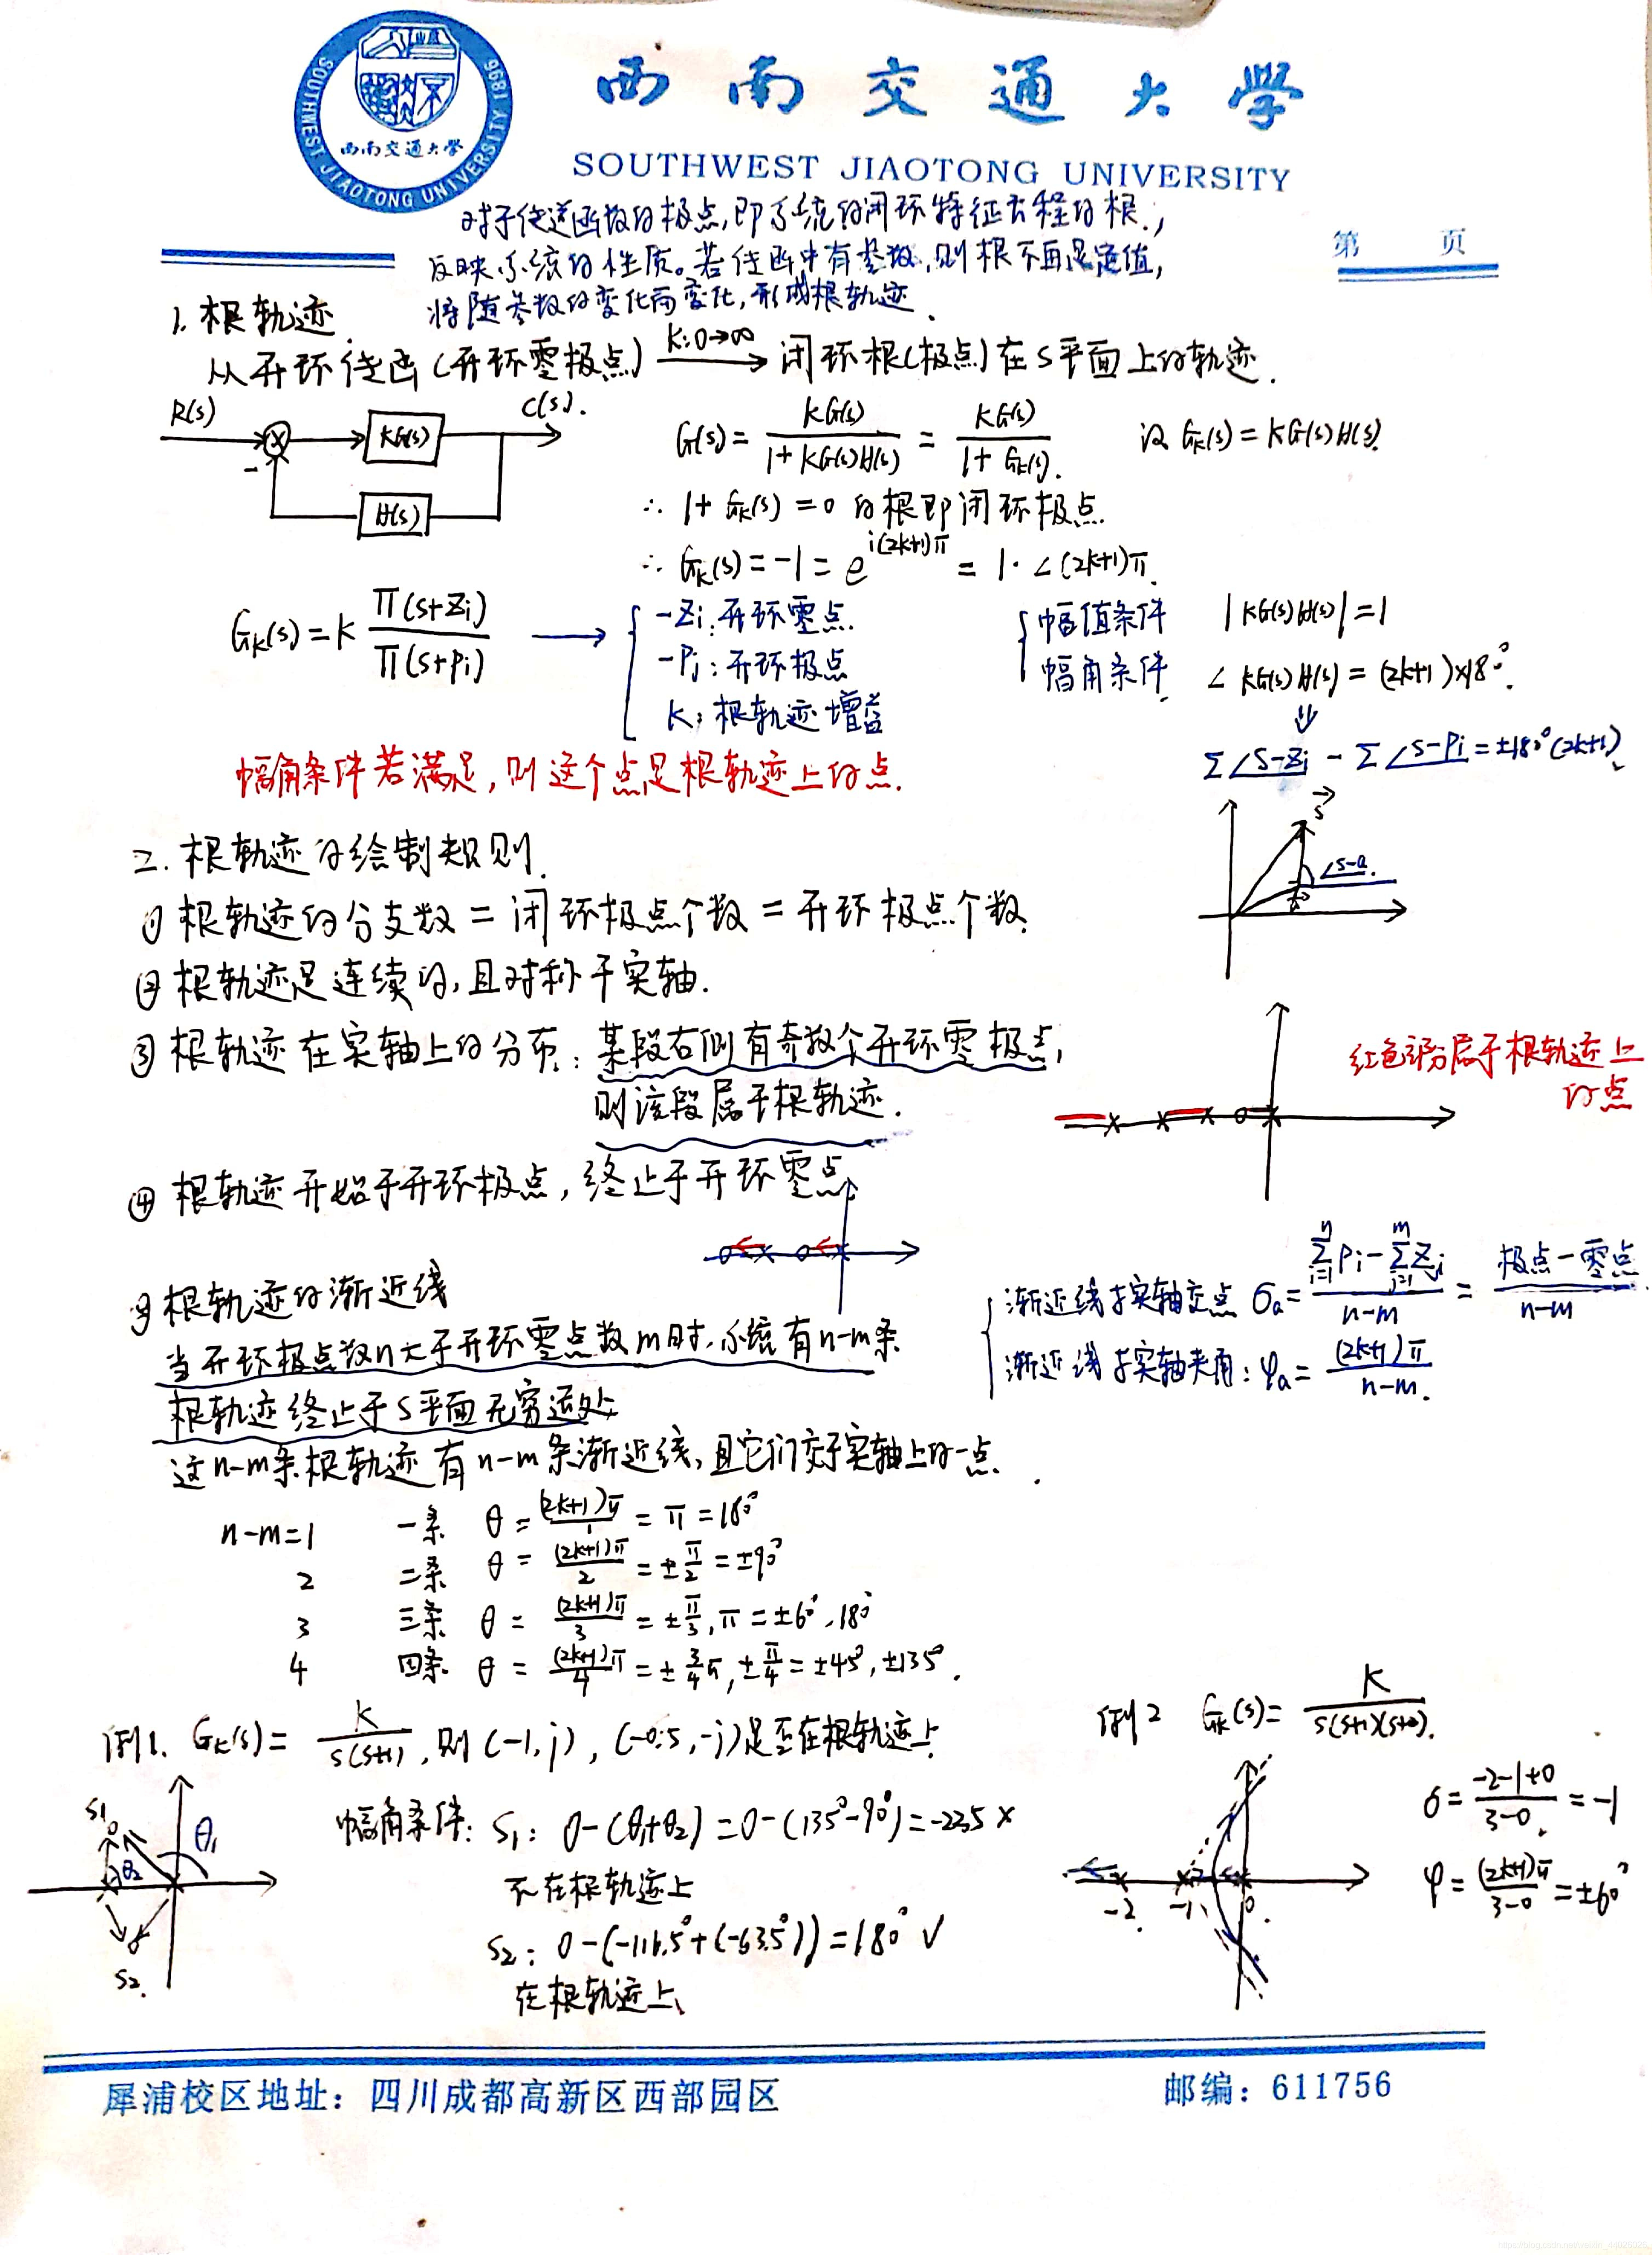 SOUTHWEST JIAOTONG UNIVERSITY 1896
西南交通大学
西南交通大学
SOUTHWEST JIAOTONG UNIVERSITY
第 页
对于传递函数的极点,即系统的闭环特征方程的根,
反映系统的性质。若传函中有参数,则根不再是定值,
将随参数的变化而变化,形成根轨迹.
1. 根轨迹.
从开环传函(开环零极点) K:0→∞ 闭环根(极点)在S平面上的轨迹.
R(s) - KG(s) C(s).
H(s)
G(s) = KG(s)/(1+KG(s)H(s)) = KG(s)/(1+Gk(s)). 设 Gk(s)=KG(s)H(s).
∴ 1+Gk(s)=0 的根即闭环极点.
∴ Gk(s)=-1=e^{i(2k+1)π} = 1·∠(2k+1)π.
Gk(s)=K Π(s+Zi)/Π(s+Pi)
-Zi:开环零点.
-Pi:开环极点
K:根轨迹增益
幅值条件 |KG(s)H(s)|=1
幅角条件 ∠KG(s)H(s)=(2k+1)×180°.
⇓
Σ∠S-Zi - Σ∠S-Pi=±180°(2k+1)
幅角条件若满足,则这个点是根轨迹上的点.
S
∠s-a.
二. 根轨迹的绘制规则.
① 根轨迹的分支数=闭环极点个数=开环极点个数.
② 根轨迹是连续的,且对称于实轴.
③ 根轨迹在实轴上的分布:某段右侧有奇数个开环零极点,
则该段属于根轨迹.
红色部分属于根轨迹上
的点
④ 根轨迹开始于开环极点,终止于开环零点.
⑤ 根轨迹的渐近线
当开环极点数n大于开环零点数m时,系统有n-m条
根轨迹终止于S平面无穷远处.
这n-m条根轨迹有n-m条渐近线,且它们交于实轴上的一点.
渐近线与实轴交点 σa = (Σ_{i=1}^{n} Pi - Σ_{j=1}^{m} Zj)/(n-m) = (极点-零点)/(n-m)
渐近线与实轴夹角:φa = (2k+1)π/(n-m).
n-m=1 一条 θ = (2k+1)π/1 = π = 180°
2 二条 θ = (2k+1)π/2 = ±π/2 = ±90°
3 三条 θ = (2k+1)π/3 = ±π/3, π = ±60°, 180°
4 四条 θ = (2k+1)π/4 = ±3/4π, ±π/4 = ±45°, ±135°.
例1. Gk(s) = K/(s(s+1)), 则(-1,j), (-0.5,-j)是否在根轨迹上.
S1 θ1 θ2 S2.
幅角条件: S1: 0-(θ1+θ2)=0-(135°-90°)=-225 ×
不在根轨迹上
S2: 0-(-116.5°+(-63.5°))=180° √
在根轨迹上.
例2 Gk(s) = K/(s(s+1)(s+2)).
-2. -1. 0.
σ = (-2-1+0)/(3-0) = -1
φ = (2k+1)π/(3-0) = ±60°
犀浦校区地址:四川成都高新区西部园区
邮编:611756